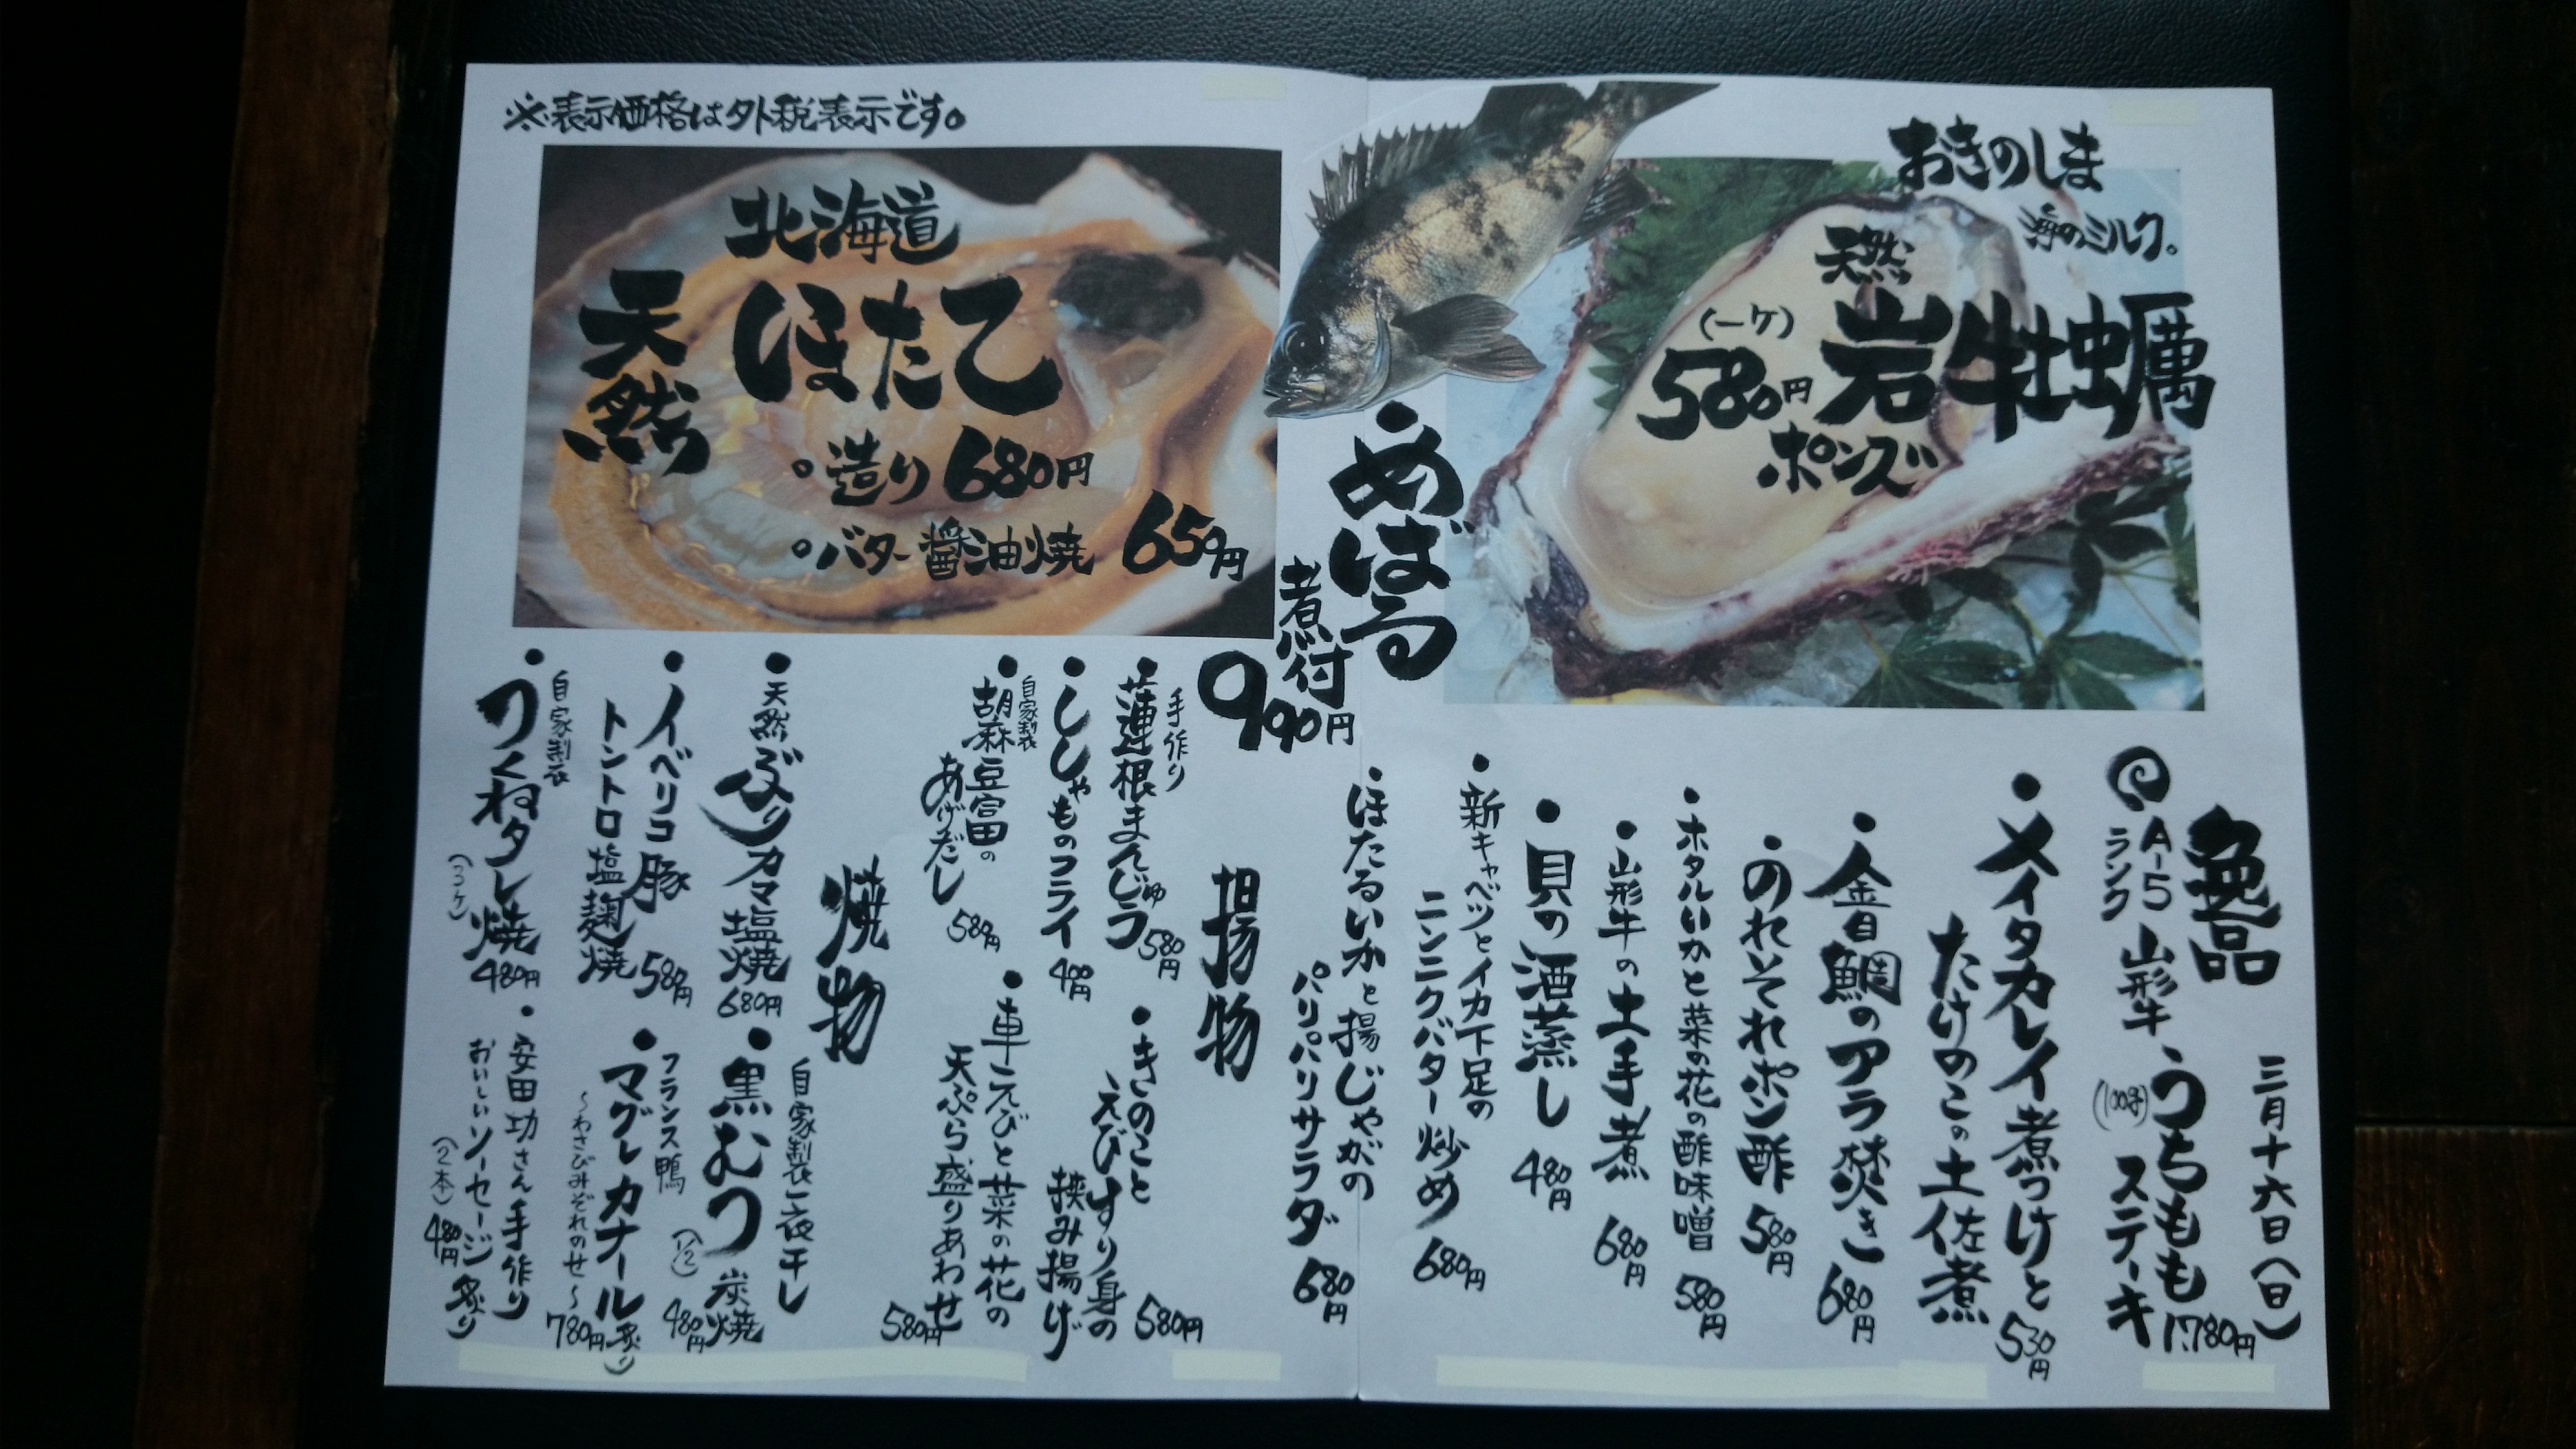 ※表示価格は外税表示です。
おきのしま
海のミルク。
天然
岩牡蠣
(一ケ)
580円
ポンズ
・めばる
煮付
990円
北海道
天然
ほたて
・造り 680円
・バター醤油焼 650円
三月十六日(日)
逸品
A-5ランク
山形牛・うちもも
(100g) ステーキ 1,780円
・メイタカレイ煮つけと
たけのこの土佐煮 530円
・金目鯛のアラ焚き 680円
・のれそれポン酢 580円
・ホタルいかと菜の花の酢味噌 580円
・山形牛の土手煮 680円
・貝の酒蒸し 480円
・新キャベツとイカ下足の
ニンニクバター炒め 680円
・ほたるいかと揚じゃがの
パリパリサラダ 680円
揚物
手作り
・蓮根まんじゅう 580円
・きのこと
えびすり身の
挟み揚げ 580円
・ししゃものフライ 400円
自家製
・胡麻豆富の
あげだし 580円
・車えびと菜の花の
天ぷら盛りあわせ 580円
焼物
・天然ぶりカマ塩焼 680円
自家製一夜干し
・黒むつ(1/2)炭焼 480円
・イベリコ豚
トントロ塩麹焼 580円
フランス鴨
・マグレカナール炙り
~わさびみぞれのせ~ 780円
自家製
・つくね タレ焼 480円
・安田功さん手作り
おいしいソーセージ炙り
(2本) 480円